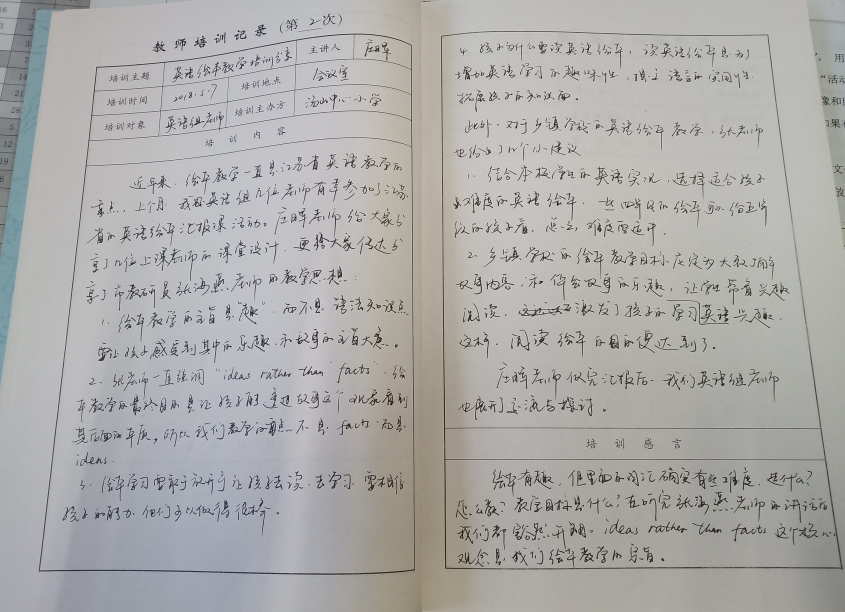 教师培训记录（第 2 次）
培训主题 英语绘本教学培训分享 主讲人 庄晖
培训时间 2018.5.7 培训地点 会议室
培训对象 英语组老师 培训主办方 汤山中心小学
培训内容
近年来，绘本教学一直是江苏省英语教学的
重点，上个月，我校英语组几位老师有幸参加了江苏
省的英语绘本汇报课活动。庄晖老师给大家分
享了几位上课老师的课堂设计，更给大家传达分
享了市教研员张海燕老师的教学思想：
1. 绘本教学的主旨是“趣”，而不是语法知识点
要让孩子感受到其中的乐趣和故事的主旨大意。
2. 张老师一直强调“ideas rather than facts”，绘
本教学的最终目的是让孩子能透过故事这个现象看到
其后面的本质，所以我们教学的重点不是 facts 而是
ideas.
3. 绘本学习要敢于放开手让孩子去读，去学习，要相信
孩子的能力，他们可以做得很棒。
4. 孩子为什么要读英语绘本，读英语绘本是为
增加英语学习的趣味性，提高语言的实用性，
拓展孩子的知识面。
此外，对于乡镇学校的英语绘本教学，张老师
也给了几个小建议
1. 结合本校学生的英语实况，选择适合孩子
难度的英语绘本，
级的孩子看，难度要适中。
2. 乡镇学校的绘本教学目标应定为大致了解
故事内容，和体会故事的乐趣，让学生带着兴趣
阅读，激发了孩子的学习英语兴趣，
这样，阅读绘本的目的便达到了。
庄晖老师做完汇报后，我们英语组老师
也展开了交流与探讨。
培训感言
绘本有趣，但里面的词汇确实有些难度，选什么？
怎么教？教学目标是什么？在听完张海燕老师的讲话后
我们都豁然开朗。ideas rather than facts 这个核心
观念是我们绘本教学的宗旨。